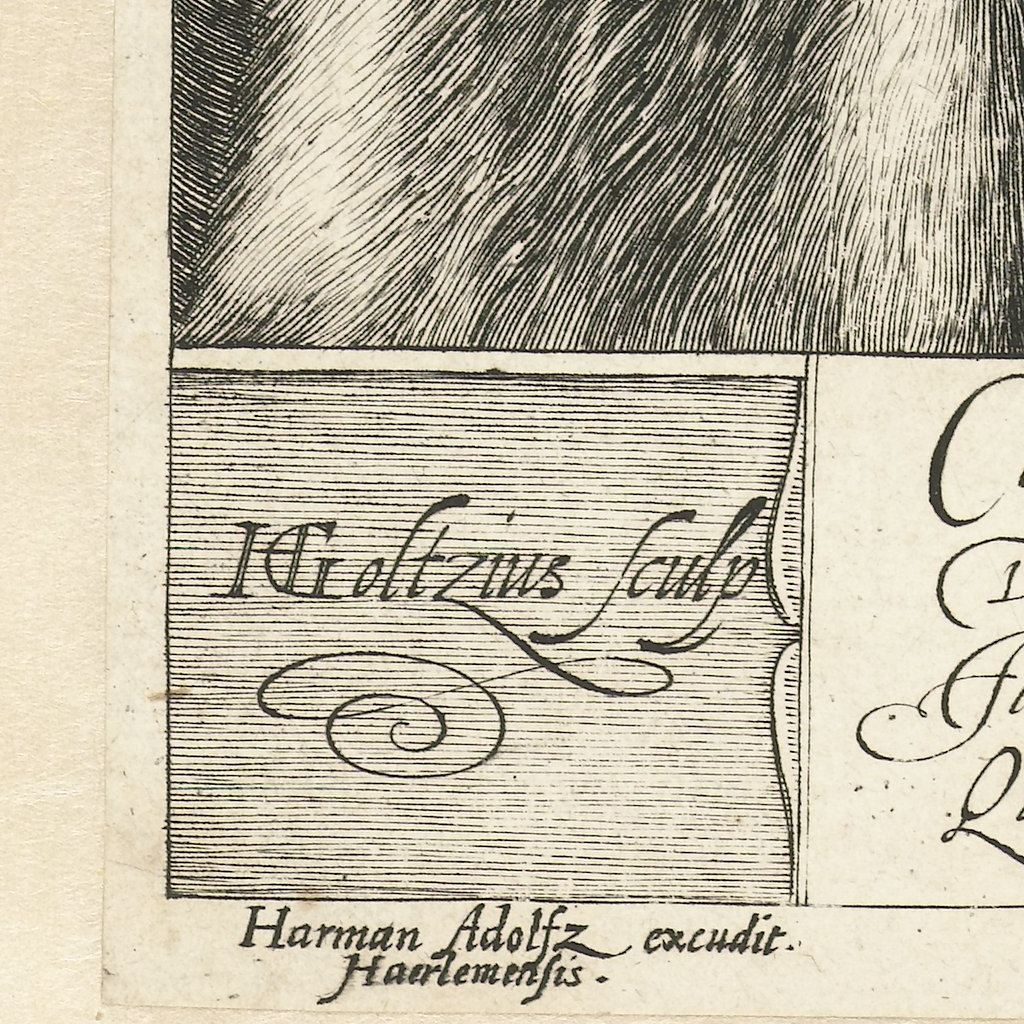 HGoltzius sculp
Harman Adolfz excudit.
Haerlemensis.